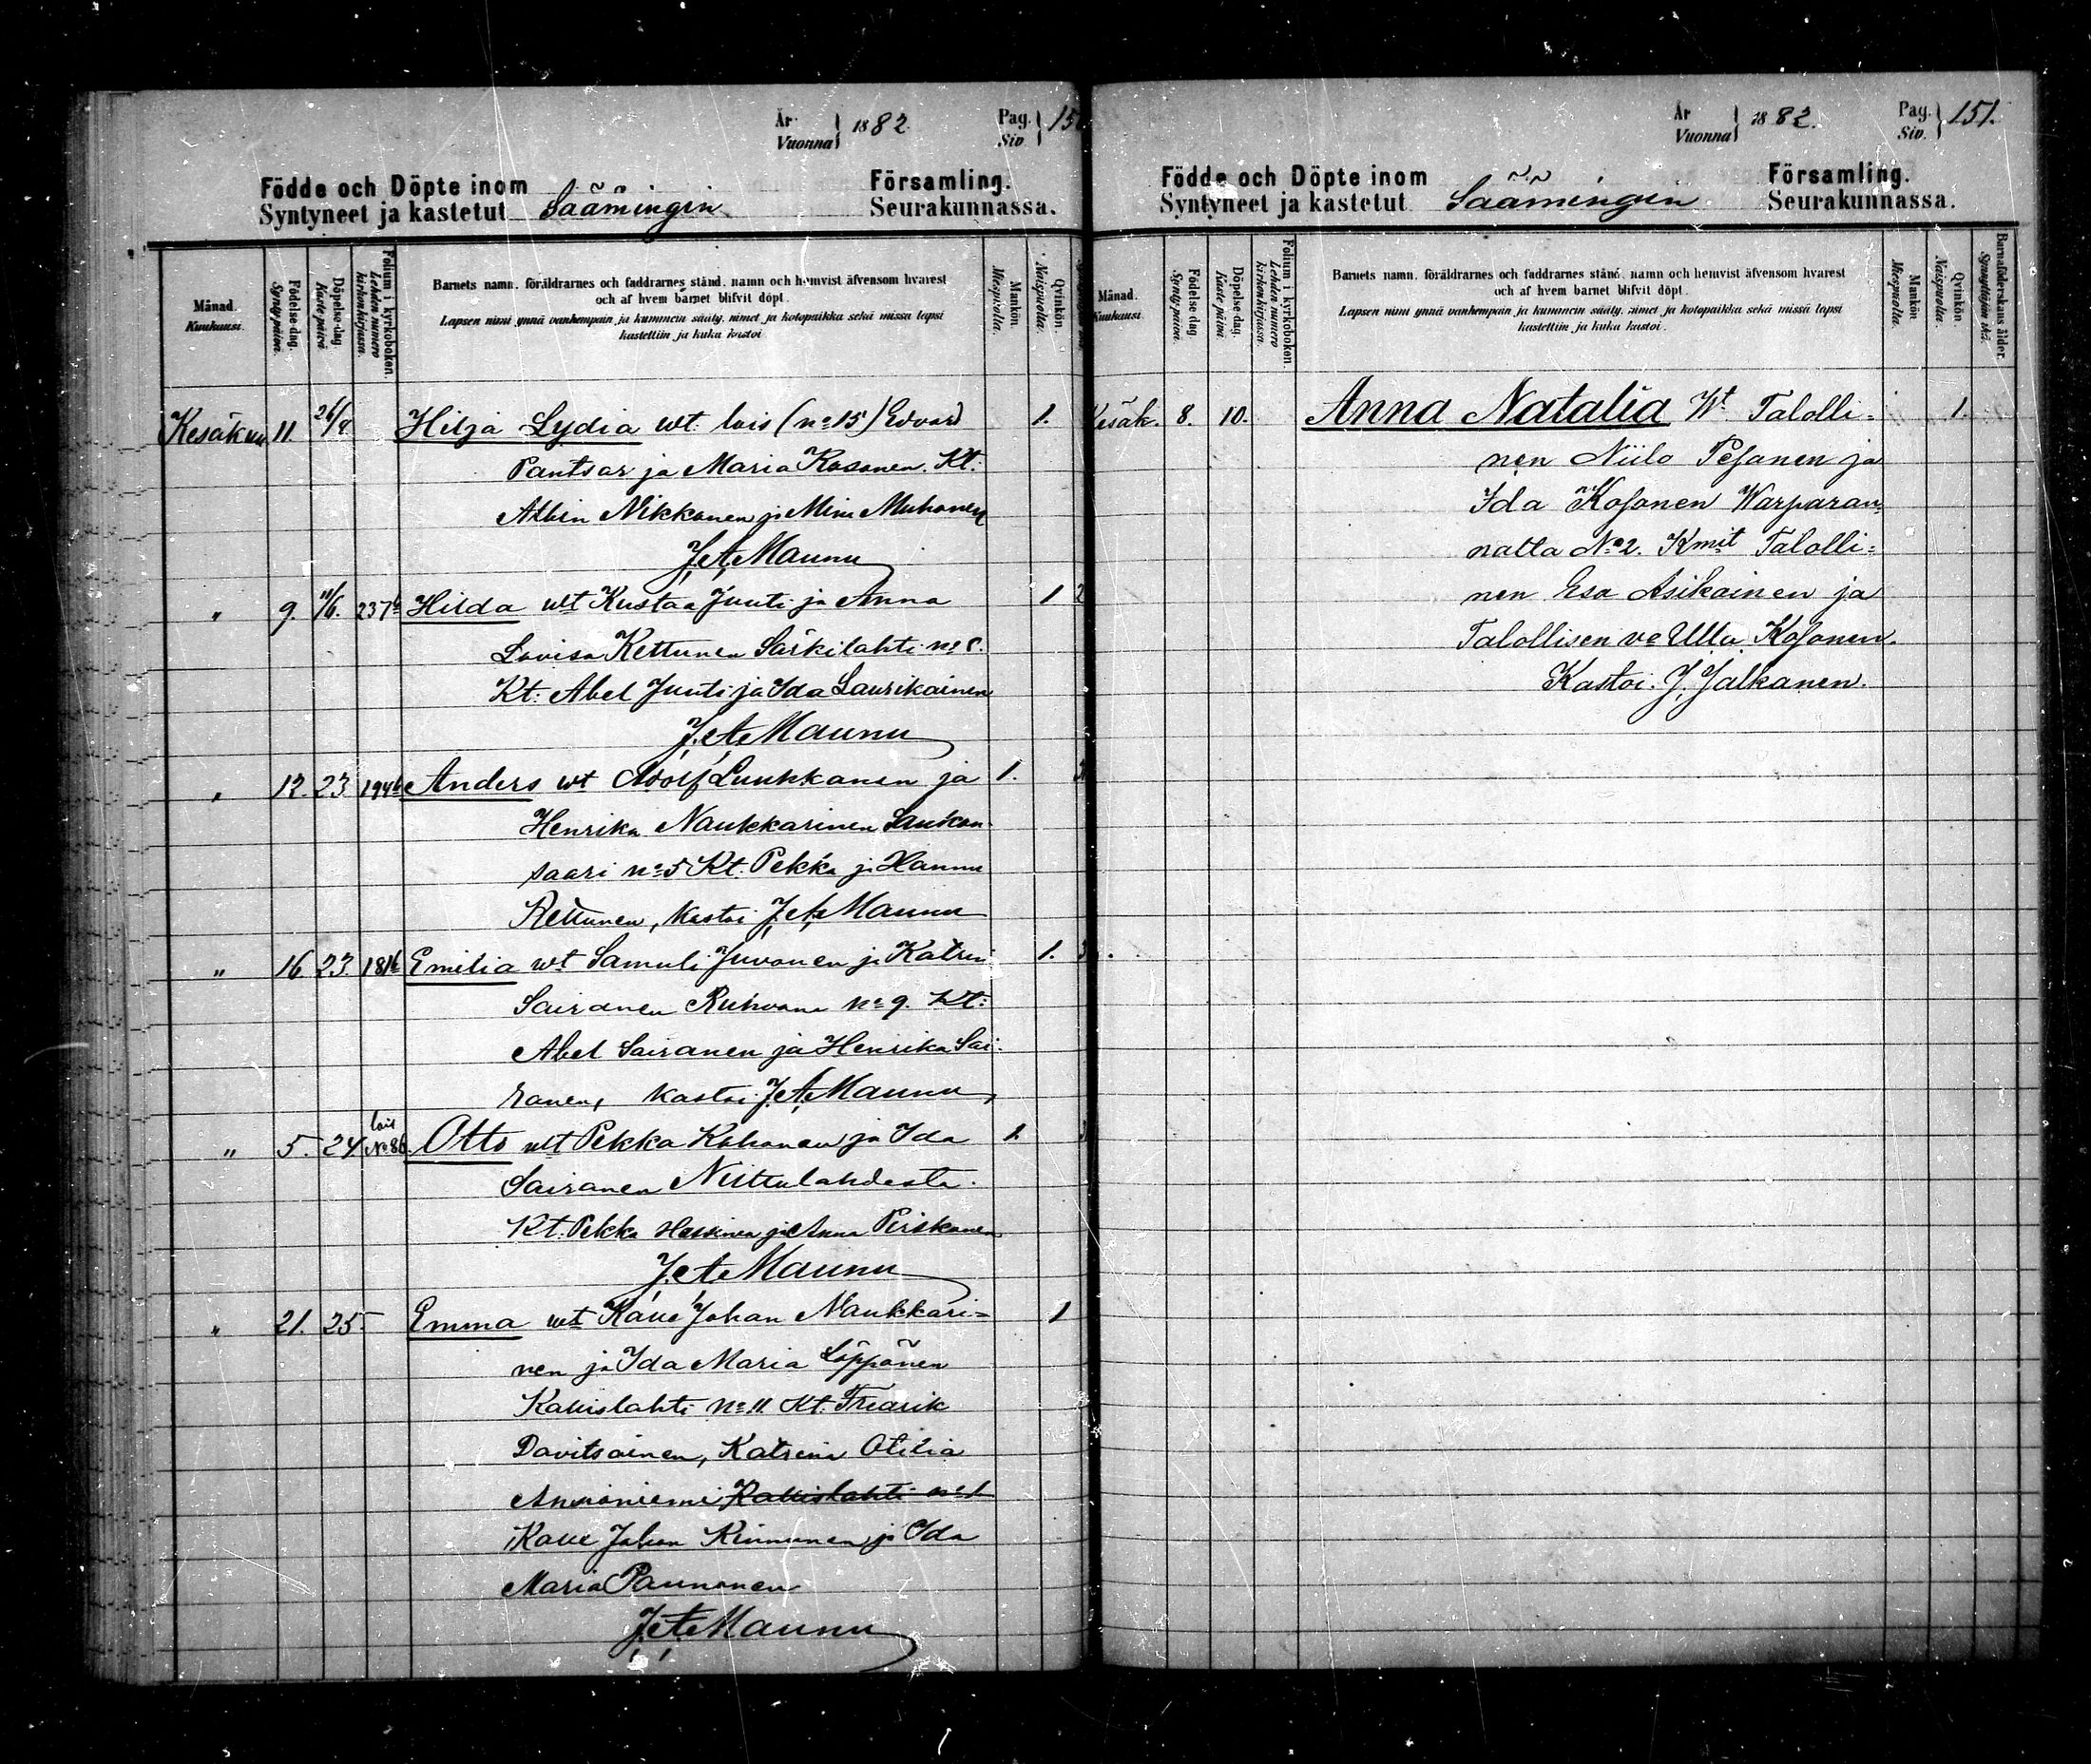 År
Vuonna } 1882.
Pag.
Siv. } 15
Födde och Döpte inom
Syntyneet ja kastetut Säämingin
Församling.
Seurakunnassa.
Månad.
Kuukausi.
Födelse-dag.
Synty päivä.
Döpelse-dag.
Kaste päivä
Folium i kyrkoboken.
Lehden numero kirkonkirjassa.
Barnets namn, föräldrarnes och faddrarnes stånd, namn och hemvist äfvensom hvarest
och af hvem barnet blifvit döpt.
Lapsen nimi ynnä vanhempain ja kummein sääty, nimet ja kotopaikka sekä missä lapsi
kastettiin ja kuka kastoi
Mankön.
Miespuolta.
Qvinkön.
Naispuolta.
Kesäkuu 11. 26/8 Hilja Lydia wt. lois (no 15) Edvard 1.
Pantsar ja Maria Kosonen. Kt:
Albin Nikkonen ja Mina Muhonen
J. A. Maunu
" 9. 11/6. 237b Hilda wt Kustaa Juuti ja Anna 1
Lovisa Kettunen Särkilahti no 8.
Kt: Abel Juuti ja Ida Laurikainen
J. A. Maunu
" 12. 23. 194b Anders wt Adolf Luukkanen ja 1.
Henrika Naukkarinen Laukan-
saari no 5 Kt. Pekka ja Hanna
Kettunen, kastoi J. A. Maunu
" 16 23. 181b Emilia wt Samuli Juvonen ja Katrin 1.
Sairanen Ruhvana no 9. Kt:
Abel Sairanen ja Henrika Sai-
ranen, kastoi J. A. Maunu,
" 5. 24 lois No 86. Otto wt Pekka Kohonen ja Ida 1.
Sairanen Niittulahdesta.
Kt. Pekka ja Anna Piiskonen
J. A. Maunu
" 21. 25. Emma wt Johan Naukkari= 1
nen ja Ida Maria Löppönen
Kallislahti no 11 Kt. Fredrik
Davitsainen, Katrina Otilia
Kallislahti no 1
Johan Kinnunen ja Ida
Maria Paunonen
J. A. Maunu
År
Vuonna } 1882.
Pag.
Siv. } 151.
Födde och Döpte inom
Syntyneet ja kastetut Säämingin
Församling.
Seurakunnassa.
Månad.
Kuukausi.
Födelse dag.
Synty päivä.
Döpelse dag.
Kaste päivä
Folium i kyrkoboken.
Lehden numero kirkonkirjassa.
Barnets namn, föräldrarnes och faddrarnes stånd, namn och hemvist äfvensom hvarest
och af hvem barnet blifvit döpt.
Lapsen nimi ynnä vanhempain ja kummein sääty, nimet ja kotopaikka sekä missä lapsi
kastettiin ja kuka kastoi.
Mankön
Miespuolta.
Qvinkön.
Naispuolta.
Barnaföderskans ålder.
Synnyttäjän ikä.
Kesäk. 8. 10. Anna Natalia Wt. Talolli= 1.
nen Niilo Pesanen ja
Ida Kosonen Warparan=
natta No 2. Kmit Talolli=
nen Esa Asikainen ja
Talollisen vo Ulla Kosonen.
Kastoi. J. Jalkanen.